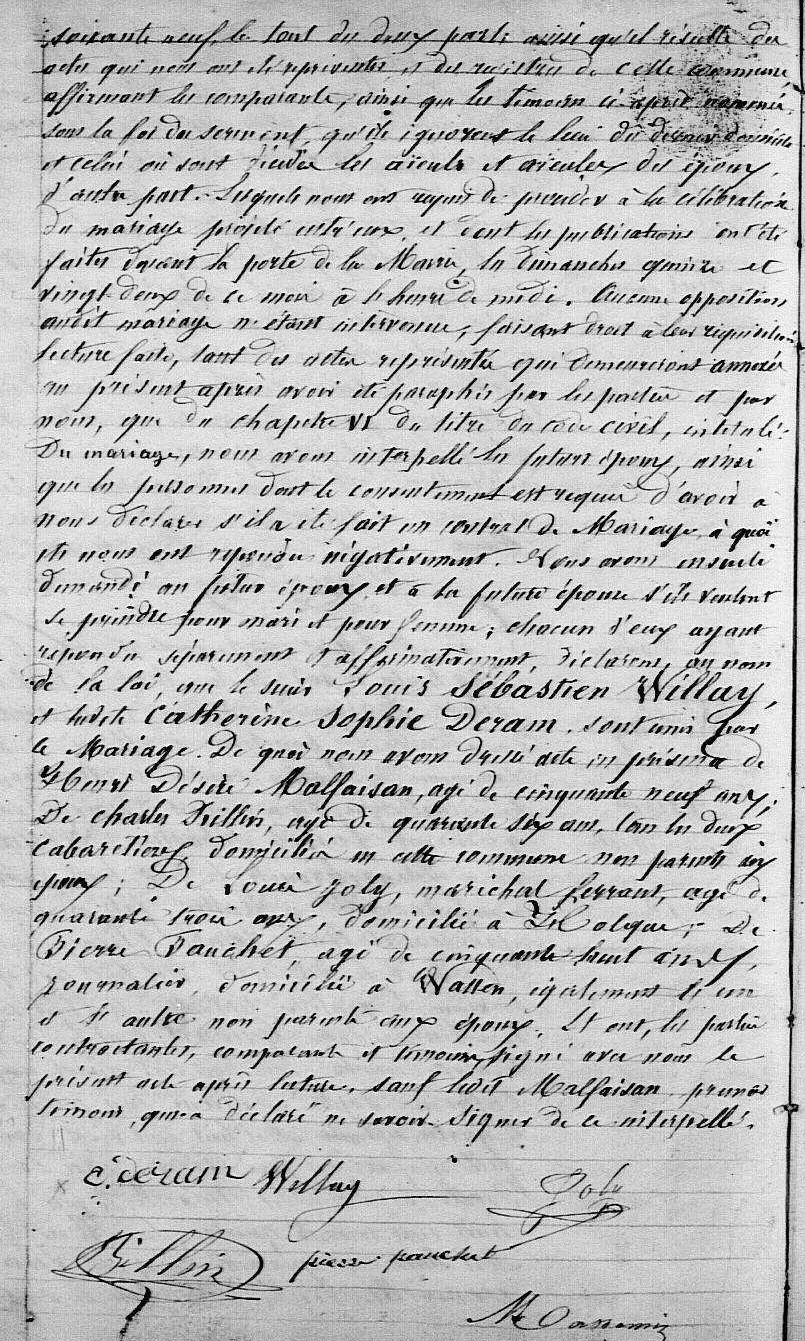 soixante neuf, le tout du deux part, ainsi qu'il résulte des
actes qui nous ont été représentés, et des registres de cette commune
affirment les comparants, ainsi que les témoins ci-après nommés,
sous la foi du serment, qu'ils ignorent le lieu du dernier domicile
et celui où sont décédés les aïeuls et aïeules des époux,
d'autre part. Lesquels nous ont requis de procéder à la célébration
du mariage projeté entr'eux, et dont les publications ont été
faites devant la porte de la Mairie, les dimanches quinze et
vingt-deux de ce mois à l'heure de midi. Aucune opposition
audit mariage n'étant intervenue, faisant droit à leur réquisition
lecture faite, tant des actes représentés qui demeureront annexés
au présent après avoir été paraphés par les parties et par
nous, que du chapitre VI du titre du code civil, intitulé:
Du mariage, nous avons interpellé les futurs époux, ainsi
que les personnes dont le consentement est requis d'avoir à
nous déclarer s'il a été fait un contrat de Mariage, à quoi
ils nous ont répondu négativement. Nous avons ensuite
demandé au futur époux et à la future épouse s'ils veulent
se prendre pour mari et pour femme; chacun d'eux ayant
répondu séparément et affirmativement, déclarons, au nom
de la loi, que le sieur Louis Sébastien Willay,
et ladite Catherine Sophie Deram, sont unis par
le Mariage. De quoi nous avons dressé acte en présence de
Henri Désiré Malfaisan, agé de cinquante neuf ans;
De Charles Trillin, agé de quarante six ans, tous les deux
cabaretiers, domiciliés en cette commune non parents aux
époux; De Louis Joly, maréchal ferrant, agé de
quarante trois ans, domicilié à Holque; De
Pierre Pauchet, agé de cinquante huit ans,
journalier, domicilié à Watten, également l'un
et l'autre non parents aux époux. Et ont, les parties
contractantes, comparants et témoins, signé avec nous le
présent acte après lecture, sauf ledit Malfaisan, premier
témoin, qui a déclaré ne savoir signer de ce interpellé.
C. deram Willay Joly
Trillin pierre pauchet